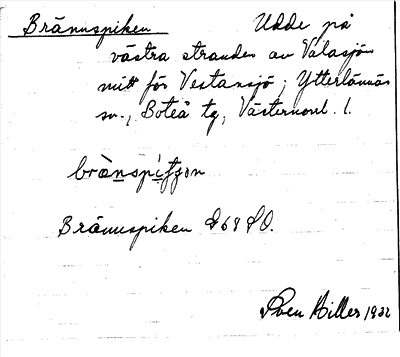 Brännspiken Udde på
västra stranden av Valasjön
mitt för Vestansjö; Ytterlännäs
sn., Boteå tg, Västernorrl. l.
Brännspiken G 68 SO.
Sven Hiller 1932